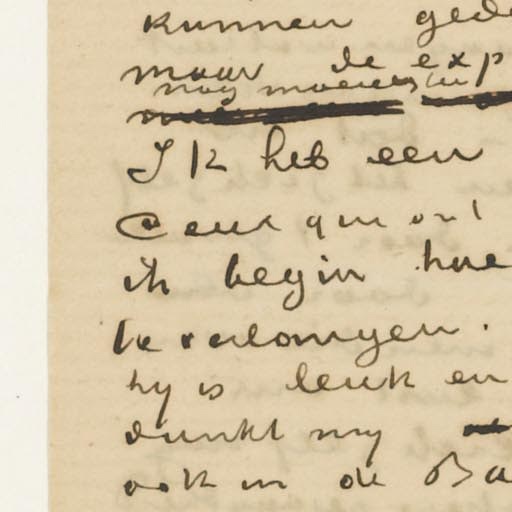 kunnen ged
maar de exp
nog moeielijk
Ik heb een
Ceux qui ont
ik begin hoe
te verlangen.
hy is leuk en
dunkt my
ook in de Ba